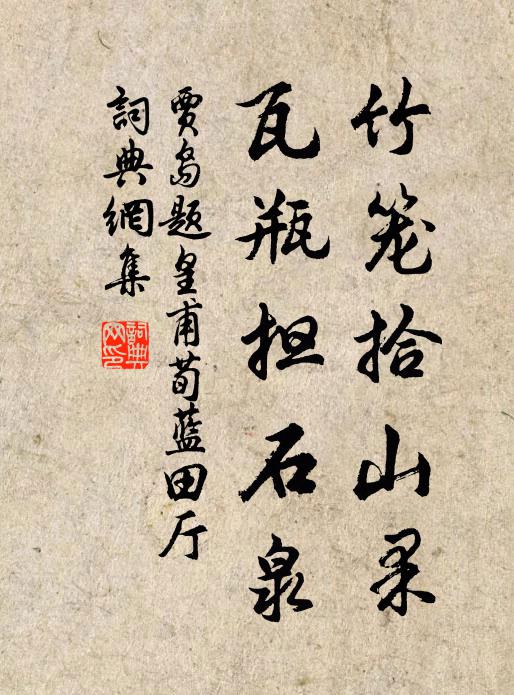 竹笼拾山果
瓦瓶担石泉
贾岛题皇甫荀蓝田厅
詞典網集
詞典网印